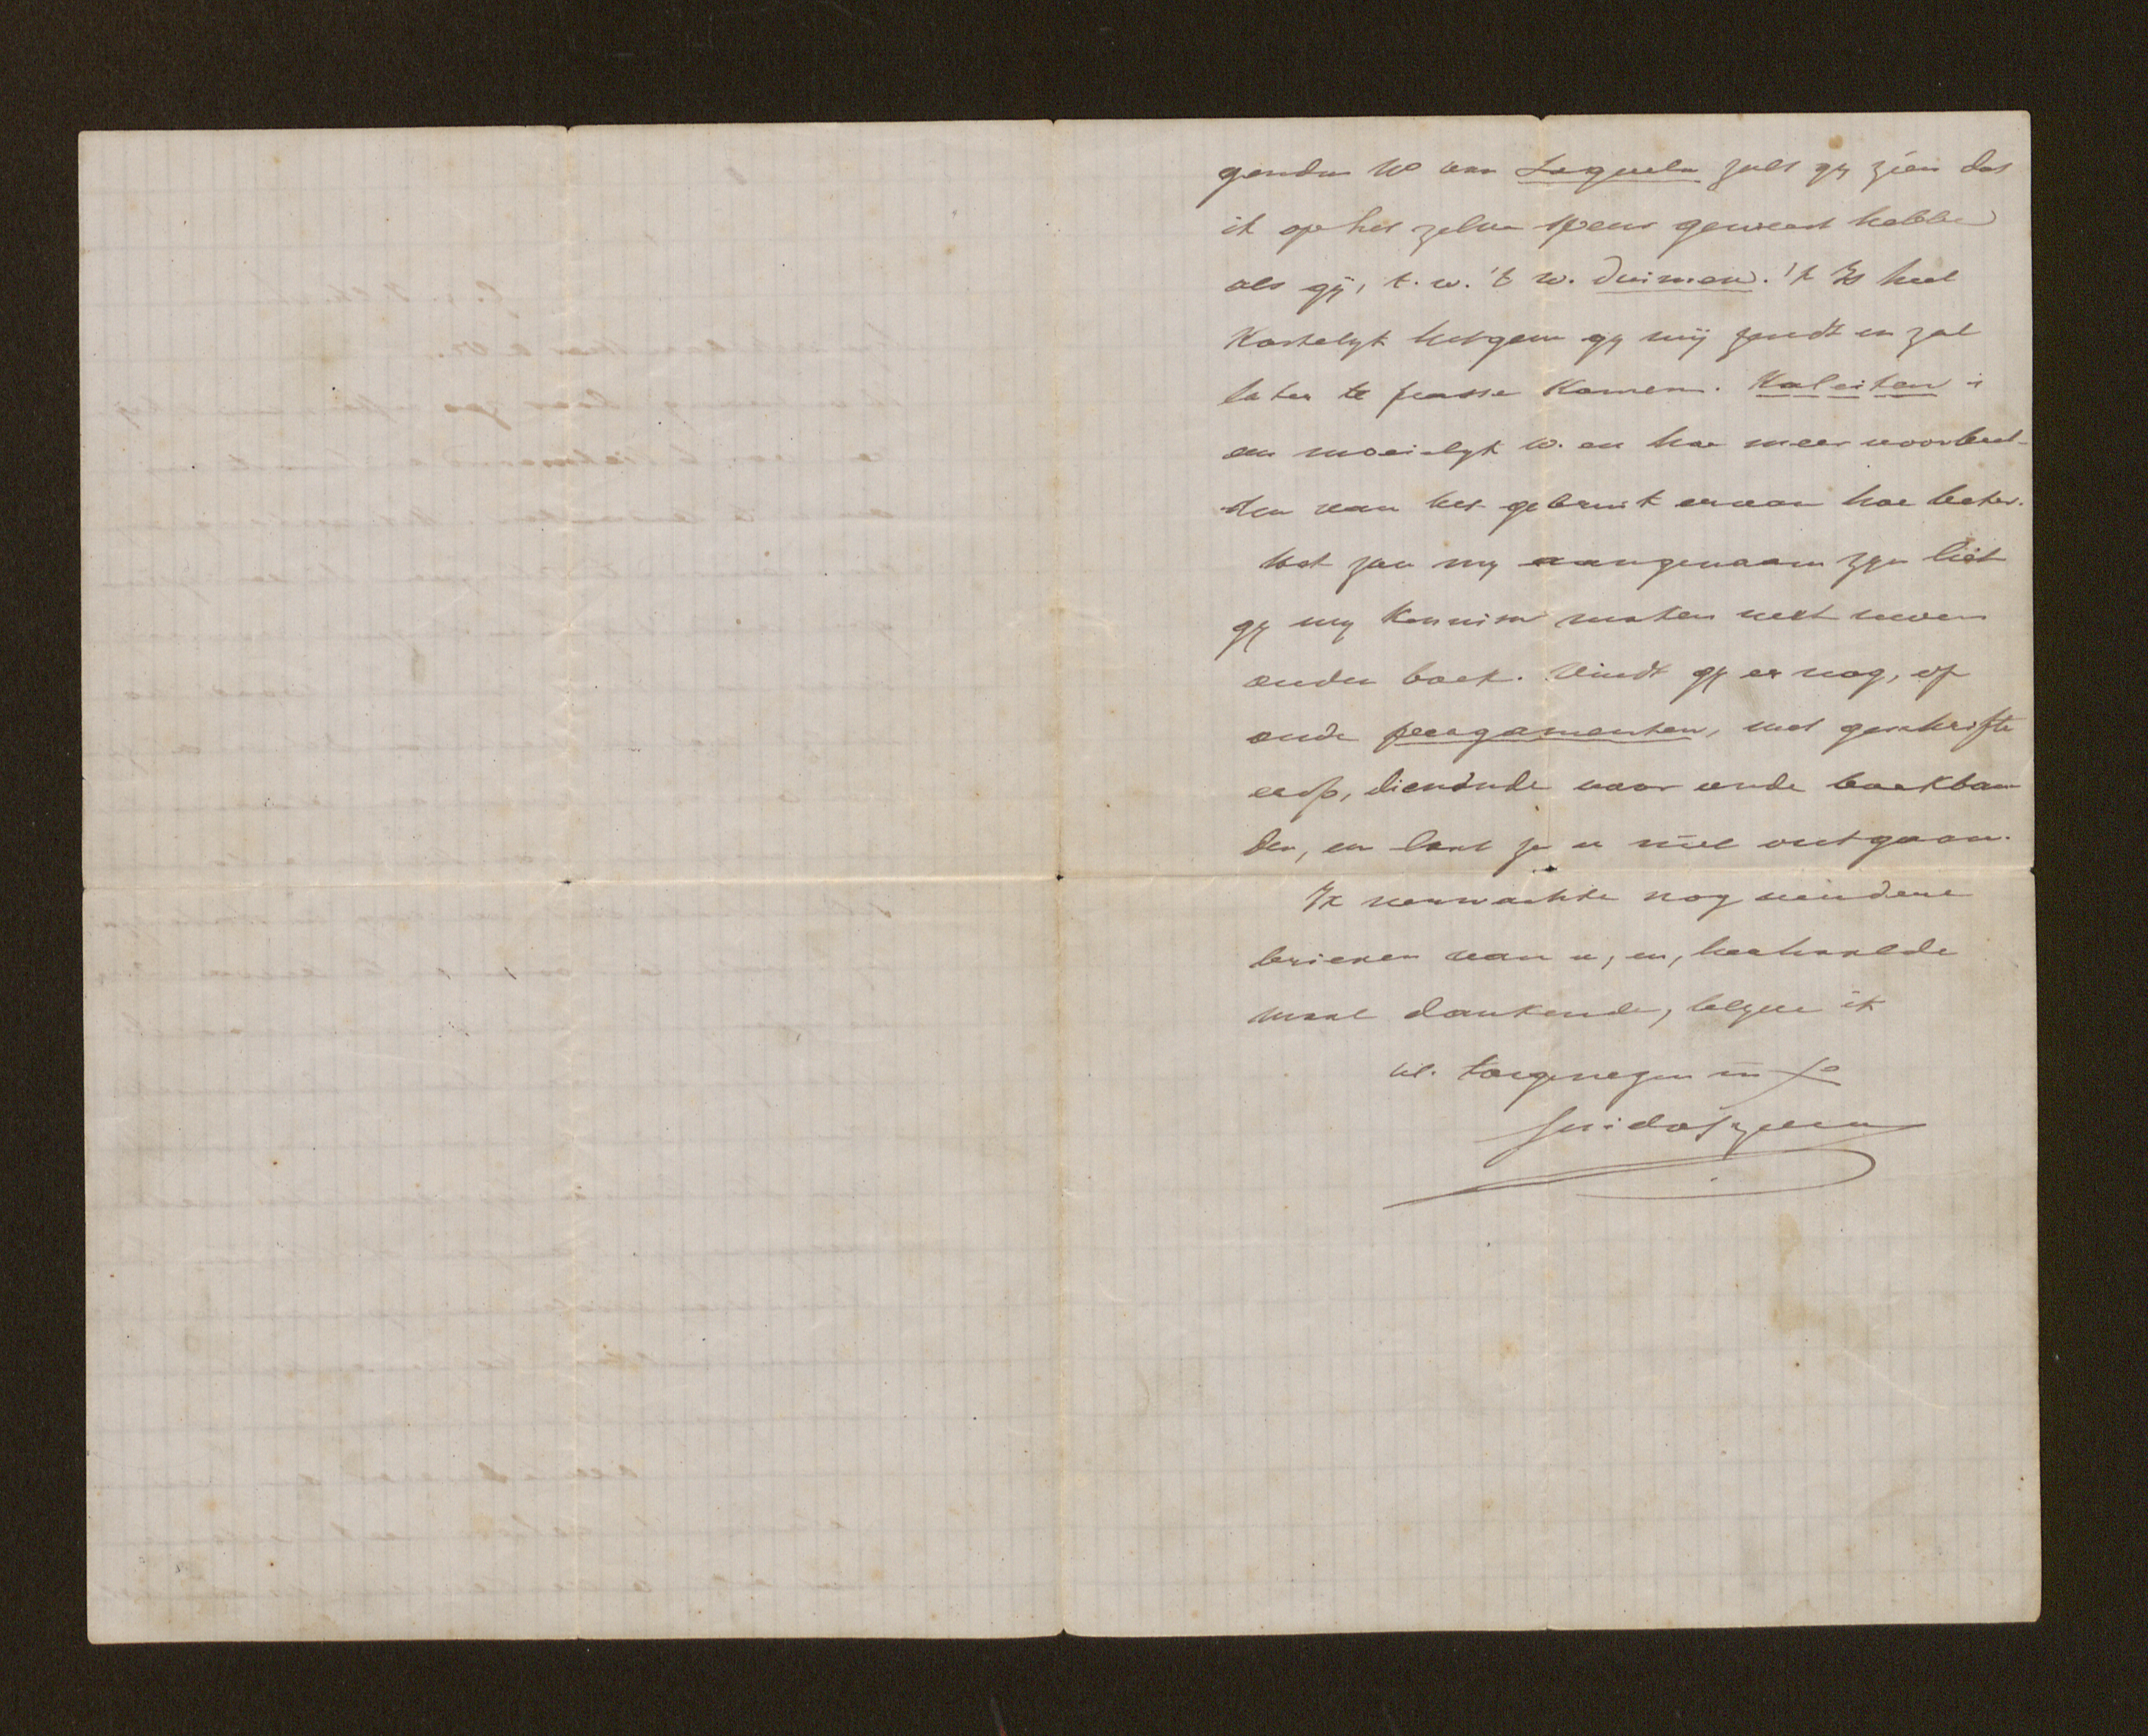 genden No van Loquela zult gy zien dat
ik op het zelve speur geweest hebbe
als gij, t. w. 't w. duimen. 't Is heel
Kostelyk hetgene gy mij zendt en zal
later te passe komen. Kaleiten is
een moeielyk w. en hoe meer voorbeel-
den van het gebruik ervan hoe beter.
Wat zou my aangenaam zyn liet
gy my kennisse maken met uwen
ouden boek. Vindt gy er nog, of
oude pergamenten, met geschrifte
erop, dienende voor oude boekban
den, en laat ze u niet ontgaan.
Ik verwachte nog verdere
brieven van u, en, herhaalde
maal dankende, blyve ik
Ul. toegenegen in Xo
Guido Gezelle